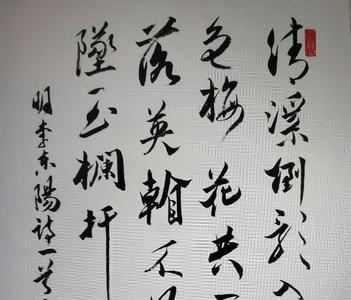 清溪倒影入
色梅花共
落英不
墜玉欄杆
明李东陽诗一首